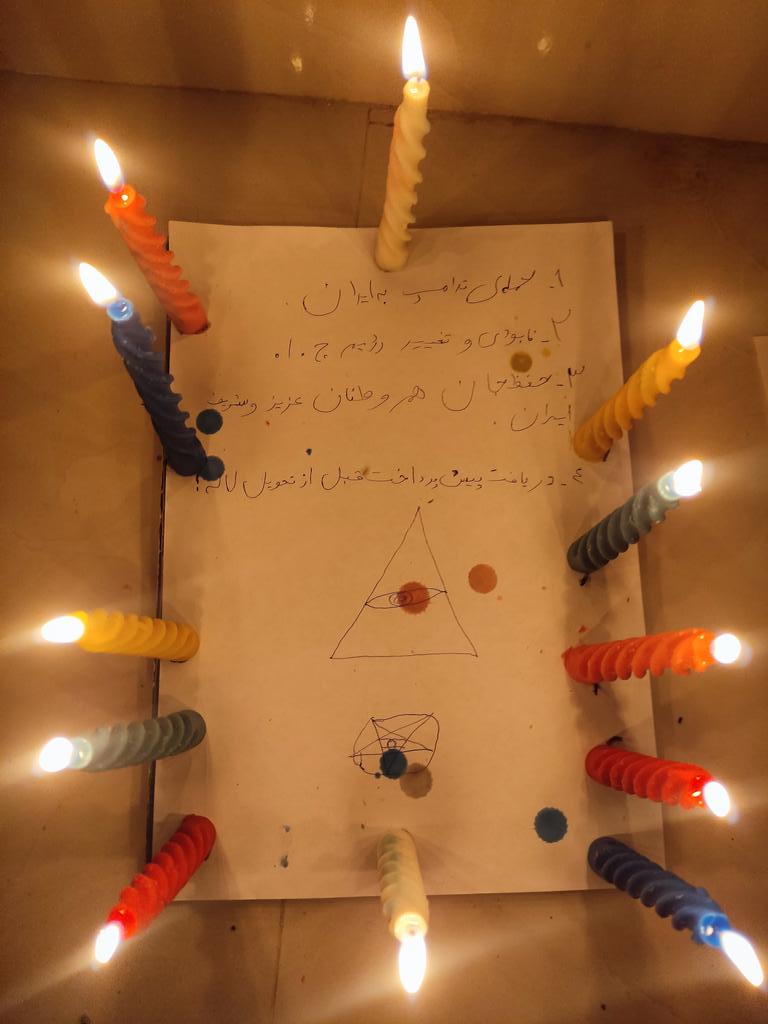 1- حمله‌ی ترامپ به ایران .
۲- نابودی و تغییر رژیم ج.ا.
۳- حفظ جان هم وطنان عزیز و شریف
ایران .
٤- دریافت پیش پرداخت قبل از تحویل لاله!